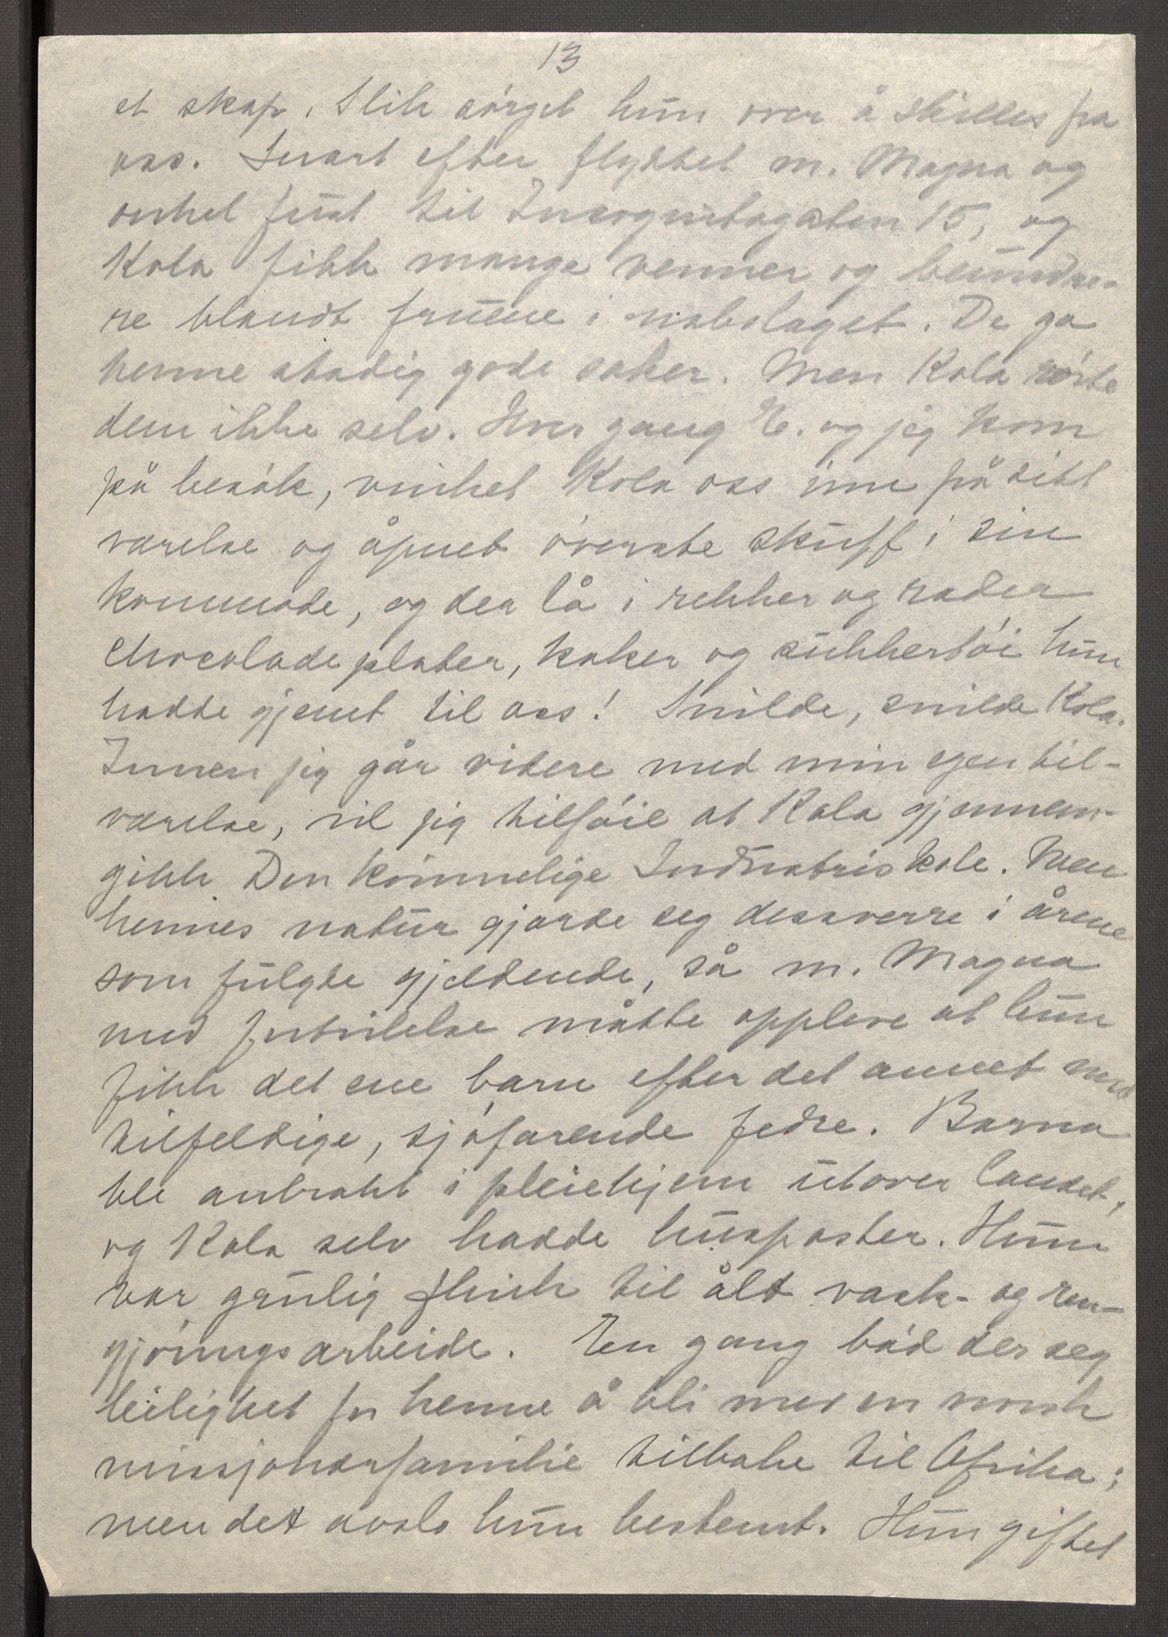 13
et skap. Slik sørget hun over å skilles fra
oss. Snart efter flyttet m. Magna og
onkel Just til Incognitogaten 15, og
Kola fikk mange venner og beundre-
re blandt fruene i nabolaget. De ga
henne stadig gode saker. Men Kola rørte
dem ikke selv. Hver gang E. og jeg kom
på besøk, vinket Kola oss inn på sitt
værelse og åpnet øverste skuff i sin
kommode, og der lå i rekker og rader
chocolade plater, kaker og sukkertøi hun
hadde gjemt til oss! Snilde, snilde Kola.
Innen jeg går videre med min egen til-
værelse, vil jeg tilføie at Kola gjennem-
gikk Den kvinnelige Industriskole. Men
hennes natur gjorde seg dessverre i årene
som fulgte gjeldende, så m. Magna
med fortvilelse måtte oppleve at hun
fikk det ene barn efter det annet med
tilfeldige, sjøfarende fedre. Barna
ble anbrakt i pleiehjem utover landet,
og Kola selv hadde husposter. Hun
var grulig flink til alt vask- og ren-
gjøringsarbeide. En gang bød der seg
leilighet for henne å bli med en norsk
missjonærfamilie tilbake til Afrika;
men det avslo hun bestemt. Hun giftet